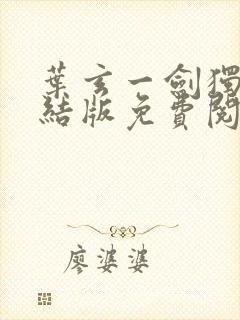 葉玄一劍獨
結版免費閱
廖婆婆